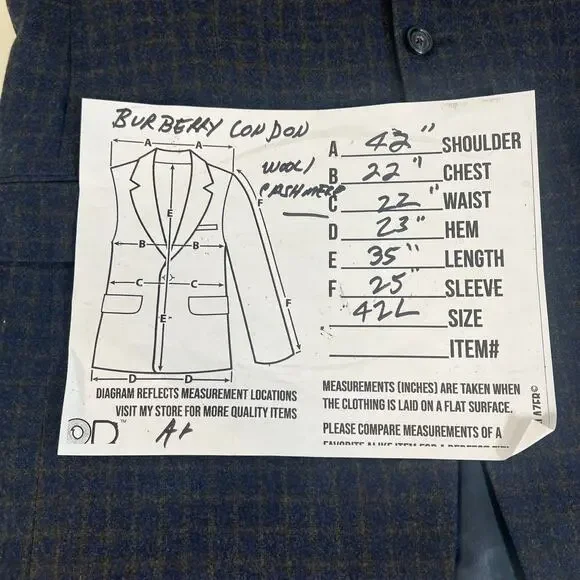 BURBERRY LONDON
WOOL/
CASHMERE
A 42" SHOULDER
B 22" CHEST
C 22" WAIST
D 23" HEM
E 35" LENGTH
F 25" SLEEVE
42L SIZE
ITEM#
A A
E
F
B B
C C
F
E
D D
DIAGRAM REFLECTS MEASUREMENT LOCATIONS
VISIT MY STORE FOR MORE QUALITY ITEMS
MEASUREMENTS (INCHES) ARE TAKEN WHEN
THE CLOTHING IS LAID ON A FLAT SURFACE.
PLEASE COMPARE MEASUREMENTS OF A
FAVORITE ALIKE ITEM FOR A BEST